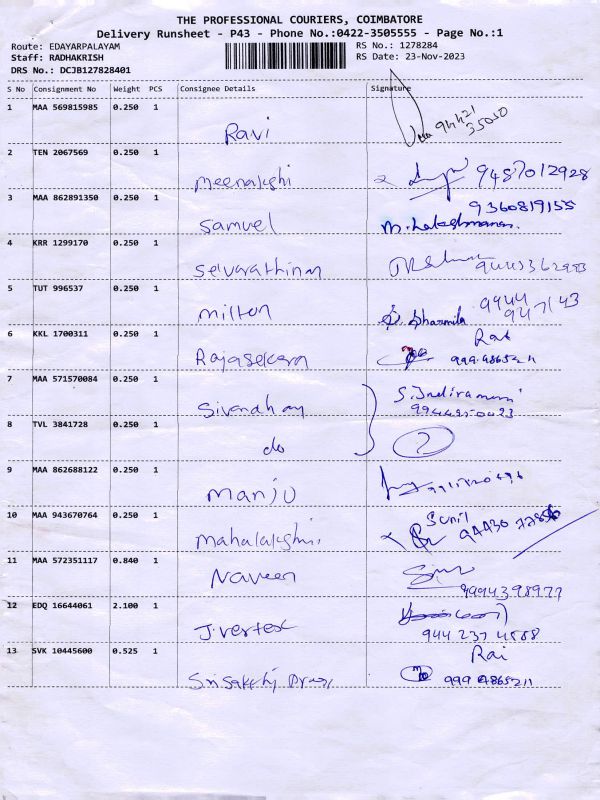 THE PROFESSIONAL COURIERS, COIMBATORE
Delivery Runsheet - P43 - Phone No.:0422-3505555 - Page No.:1
Route: EDAYARPALAYAM
RS No.: 1278284
Staff: RADHAKRISH
RS Date: 23-Nov-2023
DRS No.: DCJB127828401
S No Consignment No Weight PCS Consignee Details Signature
1 MAA 569815985 0.250 1
Ravi 94421
35010
2 TEN 2067569 0.250 1
Meenakshi 9487012928
3 MAA 862891350 0.250 1
9360819155
Samuel M. Lakshmanan.
4 KRR 1299170 0.250 1
Selvarathinam
5 TUT 996537 0.250 1
9944
947143
Milton S. Sharmila
6 KKL 1700311 0.250 1
Rajasekara
7 MAA 571570084 0.250 1
S. Indiramani
Sivandhan
8 TVL 3841728 0.250 1
do 2
9 MAA 862688122 0.250 1
Manju
10 MAA 943670764 0.250 1
Sunil
Mahalakshmi
11 MAA 572351117 0.840 1
Naveen
9994398977
12 EDQ 16644061 2.100 1
J. vertex
944 237 4588
13 SVK 10445600 0.525 1
Rai
Srisakthi